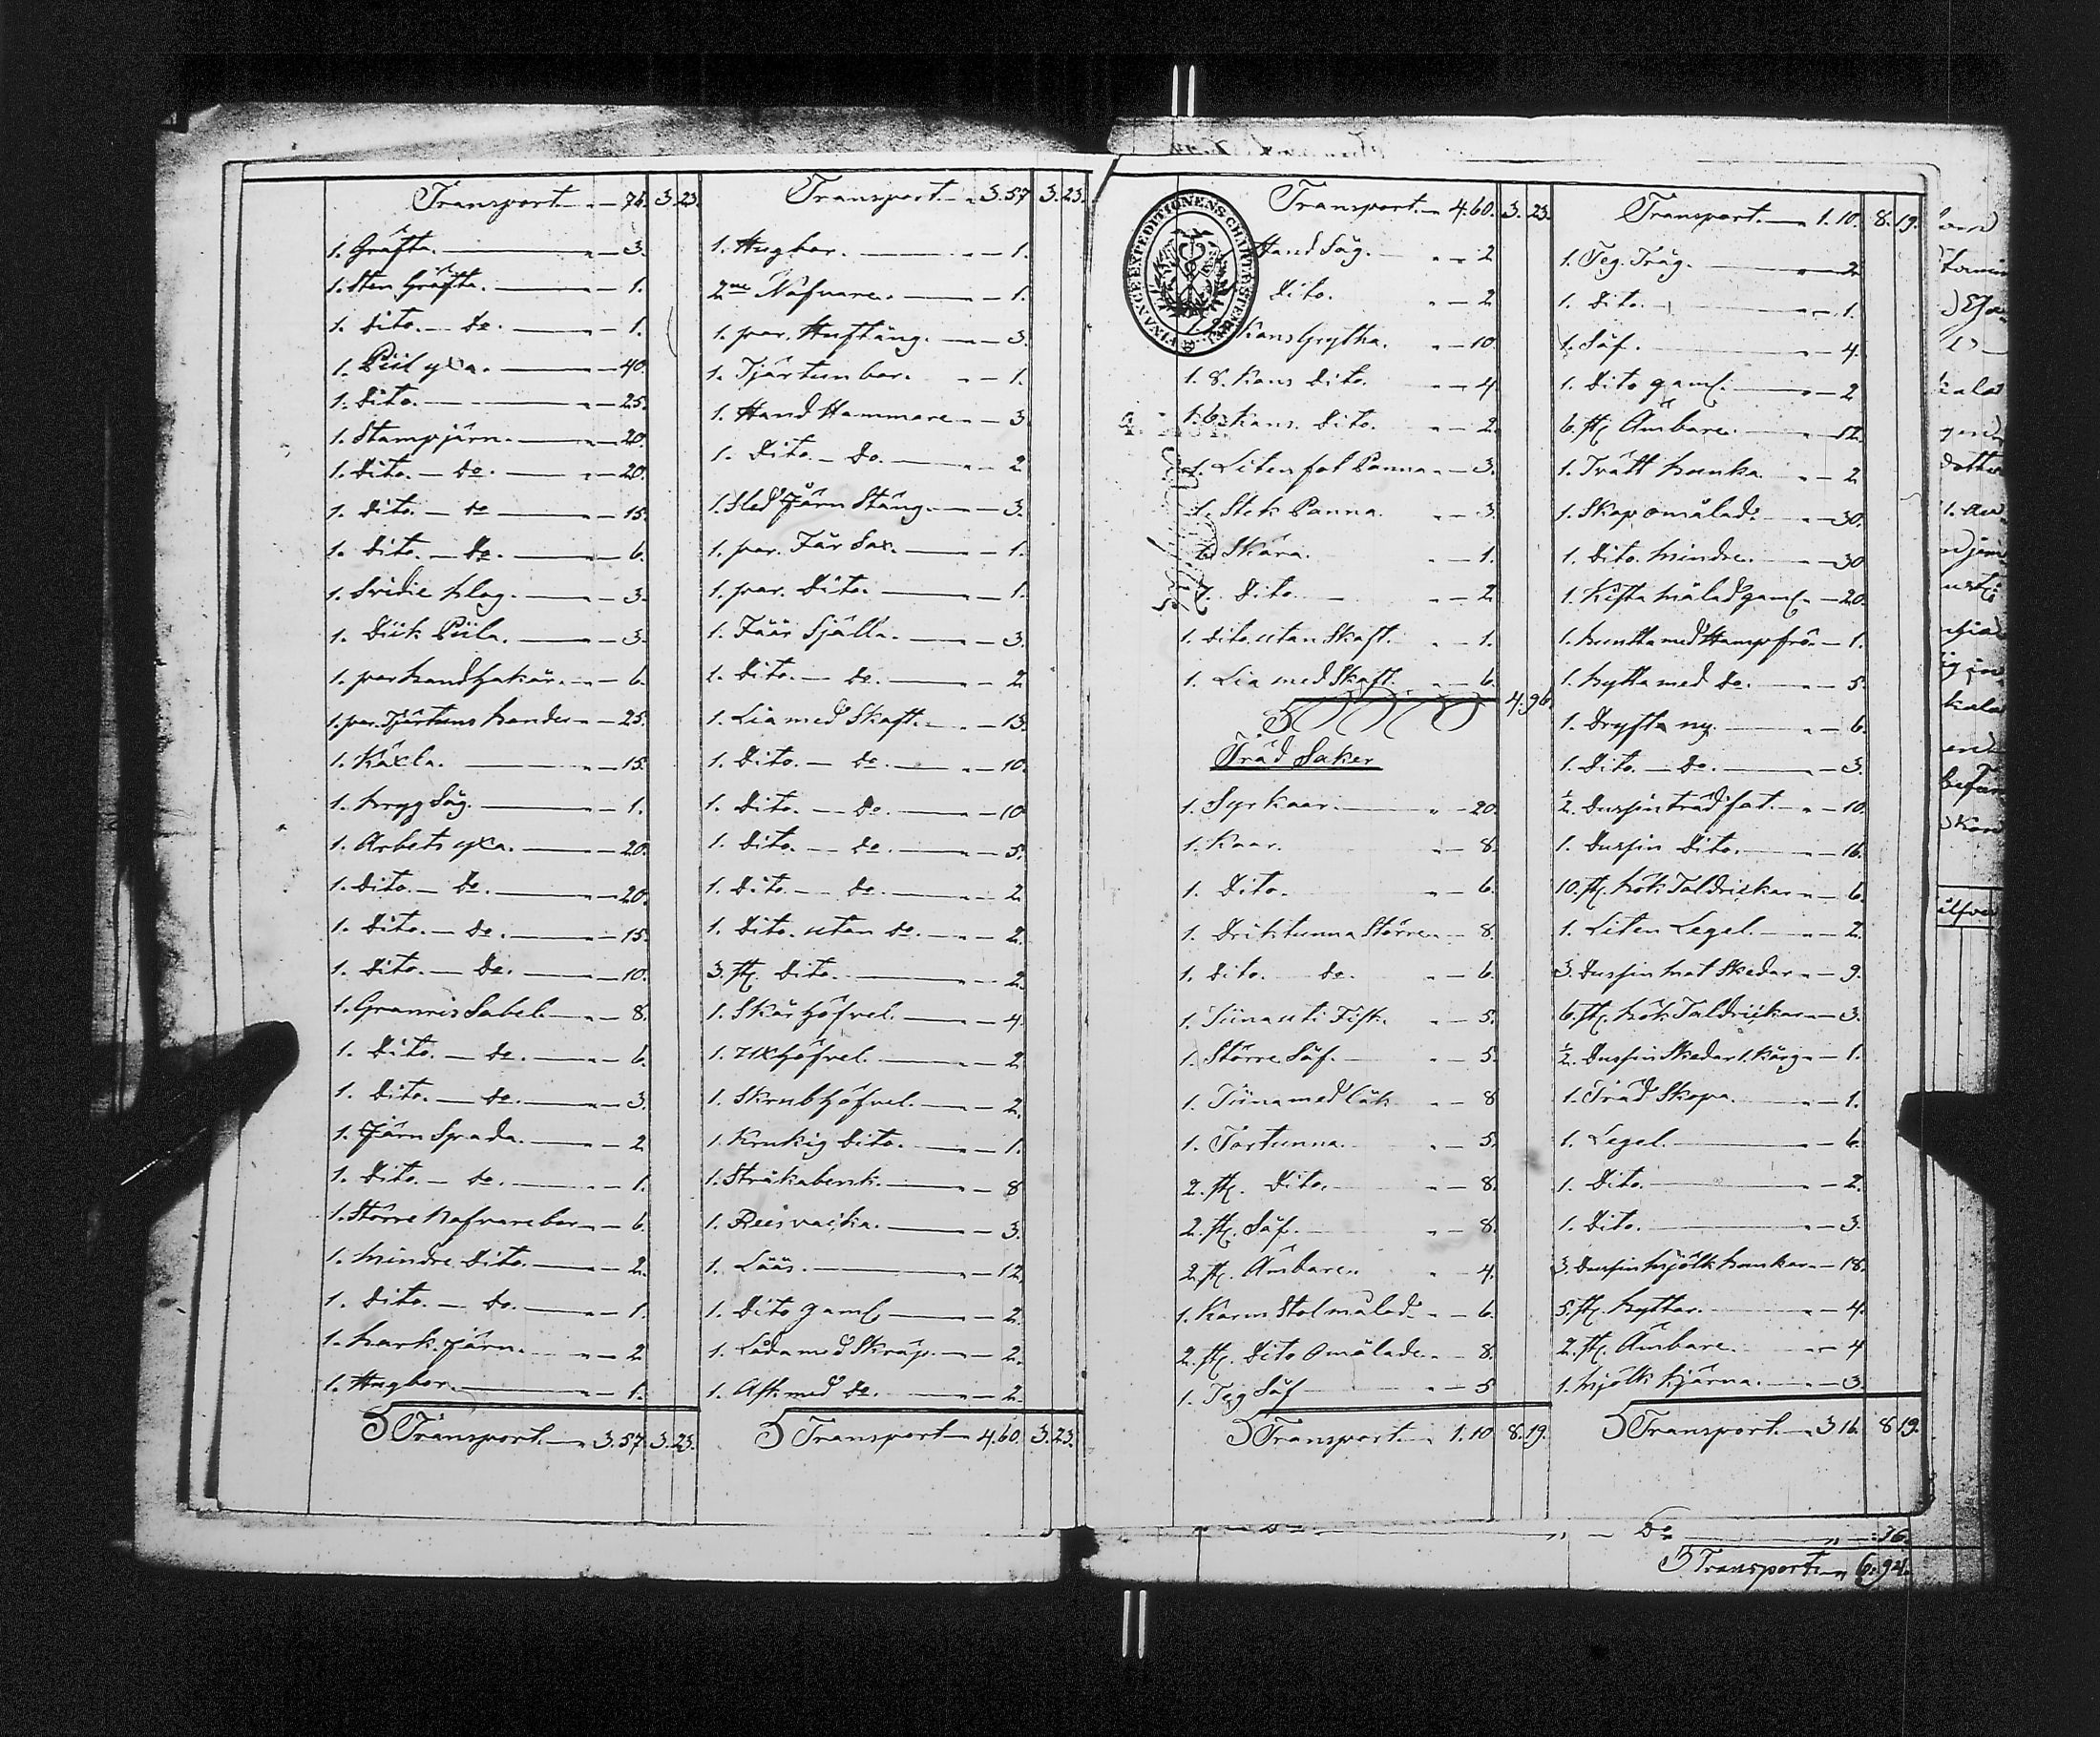 Transport " 76. 3.23.
1. Gräfta. " 3.
1. Sten Gräfta. " 1.
1. Dito. do. " 1.
1. Piil yxa. " 40.
1. Dito. " 25.
1. Stampjärn. " 20.
1. Dito. do. " 20.
1. Dito. do " 15.
1. Dito. do. " 6.
1. " 3.
1. Diik Piila. " 3.
1. par " 6.
1. par. Tjärtuns " 25.
1. Käxla. " 15.
1. Såg. " 1.
1. Arbets yxa. " 20.
1. Dito. do. " 20.
1. Dito. do. " 15.
1. Dito. do. " 10.
1. Grannis Sabel. " 8.
1. Dito. do. " 6.
1. Dito. do. " 3.
1. Järn Spada. " 2
1. Dito. do. " 1.
1. Större Nafvare bor " 6.
1. Mindre Dito. " 2.
1. Dito. do. " 1.
1. Mark järn. " 2
1. Hugbor. " 1.
Transport. " 3.57. 3.23.
Transport. " 3.57 3.23.
1. Hugbor. " 1.
2ne Nafvare. " 1.
1. par. Huftång. " 3.
1. Tjärtun bor. " 1.
1. Hand Hammare " 3
1. Dito. do. " 2
1. Sled Järn Stång. " 3.
1. par. Får Sax. " 1.
1. par. Dito. " 1.
1. Fäär Själla. " 3.
1. Dito. do. " 2
1. Lia med Skaft. " 13.
1. Dito. do. " 10.
1. Dito. do. " 10
1. Dito. do. " 5.
1. Dito. do. " 2
1. Dito. utan do. " 2.
3. st. Dito. " 2.
1. Skär höfvel. " 4.
1. höfvel. " 2
1. Skrubhöfvel. " 2.
1. Krukig Dito. " 1.
1. Stråkabenk. " 8
1. " 3.
1. Låås. " 12.
1. Dito gaml " 2.
1. Låda med Skråp. " 2.
1. Ask med do. " 2.
Transport " 4.60. 3.23.
Transport. " 4.60. 3.23.
Hand Såg. " 2
Dito. " 2
Kans Grytha. " 10
1. 8. Kans Dito. " 4
1. 6. Kans. Dito. " 2.
1. Liten fot Panna " 3.
1. Stek Panna. " 3.
1. Skära. " 1.
1. Dito. " 2
1. Dito utan Skaft. " 1.
1. Lia med Skaft. " 6.
4.96.
Träd Saker
1. Syr kaar. " 20.
1. Kaar. " 8.
1. Dito. " 6.
1. Driktunna Större " 8.
1. Dito. do. " 6.
1. Tiina uti Fisk. " 5.
1. Större Såf. " 5
1. Tiina med Låk " 8
1. Tortunna. " 5.
2. st. Dito. " 8.
2. st. Såf. " 8.
2. st. Ämbare. " 4.
1. Karm Stol målad. " 6.
2. st. Dito Omålade. " 8.
1. Teg Såf " 5
Transport. " 1.10 8.19.
Transport. " 1.10. 8.19.
1. Teg. Tråg. " 2
1. Dito. " 1.
1. Såf. " 4.
1. Dito gaml. " 2
6. st. Ämbare. " 12.
1. Tvätt bunka. " 2
1. Skap omålad. " 30.
1. Dito. Mindre. " 30
1. Kista målad gaml. " 20.
1. med Hampfrö " 1.
1. bytta med do. " 5.
1. Dryfta ny. " 6.
1. Dito. do. " 3.
½. Dussin träd fat. " 10.
1. Dussin Dito. " 16.
10. st. Taldrickar " 6.
1. Liten Legel. " 2.
3. Dussin Mat Skedar " 9.
6. st. Taldrickar " 3.
½. Dussin Skedar 1. Kårg " 1.
1. Träd Skopa. " 1.
1. Legel. " 6.
1. Dito. " 2.
1. Dito. " 3.
3. Dussin Mjölk bunkar " 18.
5. st. byttor. " 4.
2. st. Ämbare. " 4
1. Mjölk kjärna. " 3.
Transport. " 3.16. 8.19.
do " do " 16.
Transport " 6.94.
FINANCE EXPEDITIONENS CHARTÆ STEMPEL